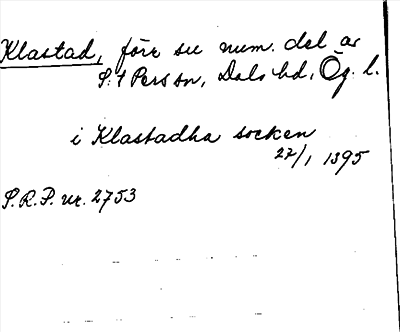 Klastad, förr su num. del av
S:t Person, Dals hd, Ög. l.
i Klastadha socken
22/1 1395
S.R.P. nr. 2753